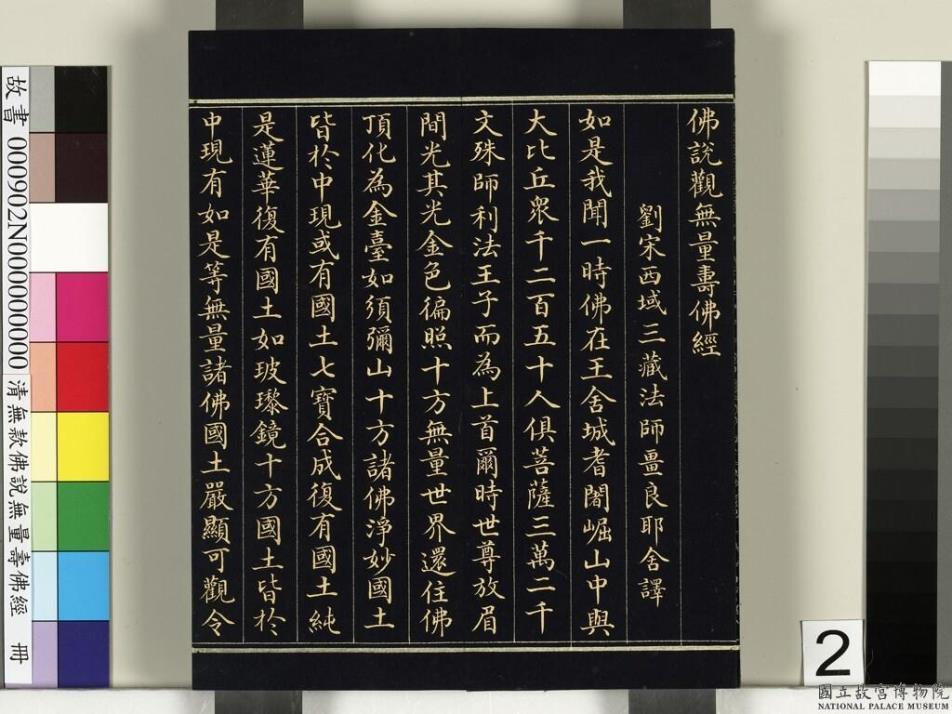 佛說觀無量壽佛經
劉宋西域三藏法師畺良耶舍譯
如是我聞一時佛在王舍城耆闍崛山中與
大比丘眾千二百五十人俱菩薩三萬二千
文殊師利法王子而為上首爾時世尊放眉
間光其光金色徧照十方無量世界還住佛
頂化為金臺如須彌山十方諸佛淨妙國土
皆於中現或有國土七寶合成復有國土純
是蓮華復有國土如玻瓈鏡十方國土皆於
中現有如是等無量諸佛國土嚴顯可觀令
故書 000902N000000000 清無款佛說無量壽佛經 冊
2
國立故宮博物院
NATIONAL PALACE MUSEUM